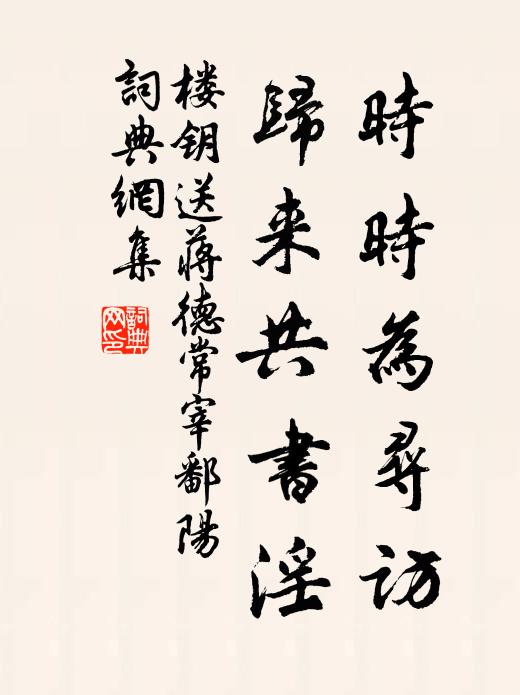 時時為尋訪
歸来共書淫
楼钥送蔣德常宰鄱陽
詞典網集
詞典网印